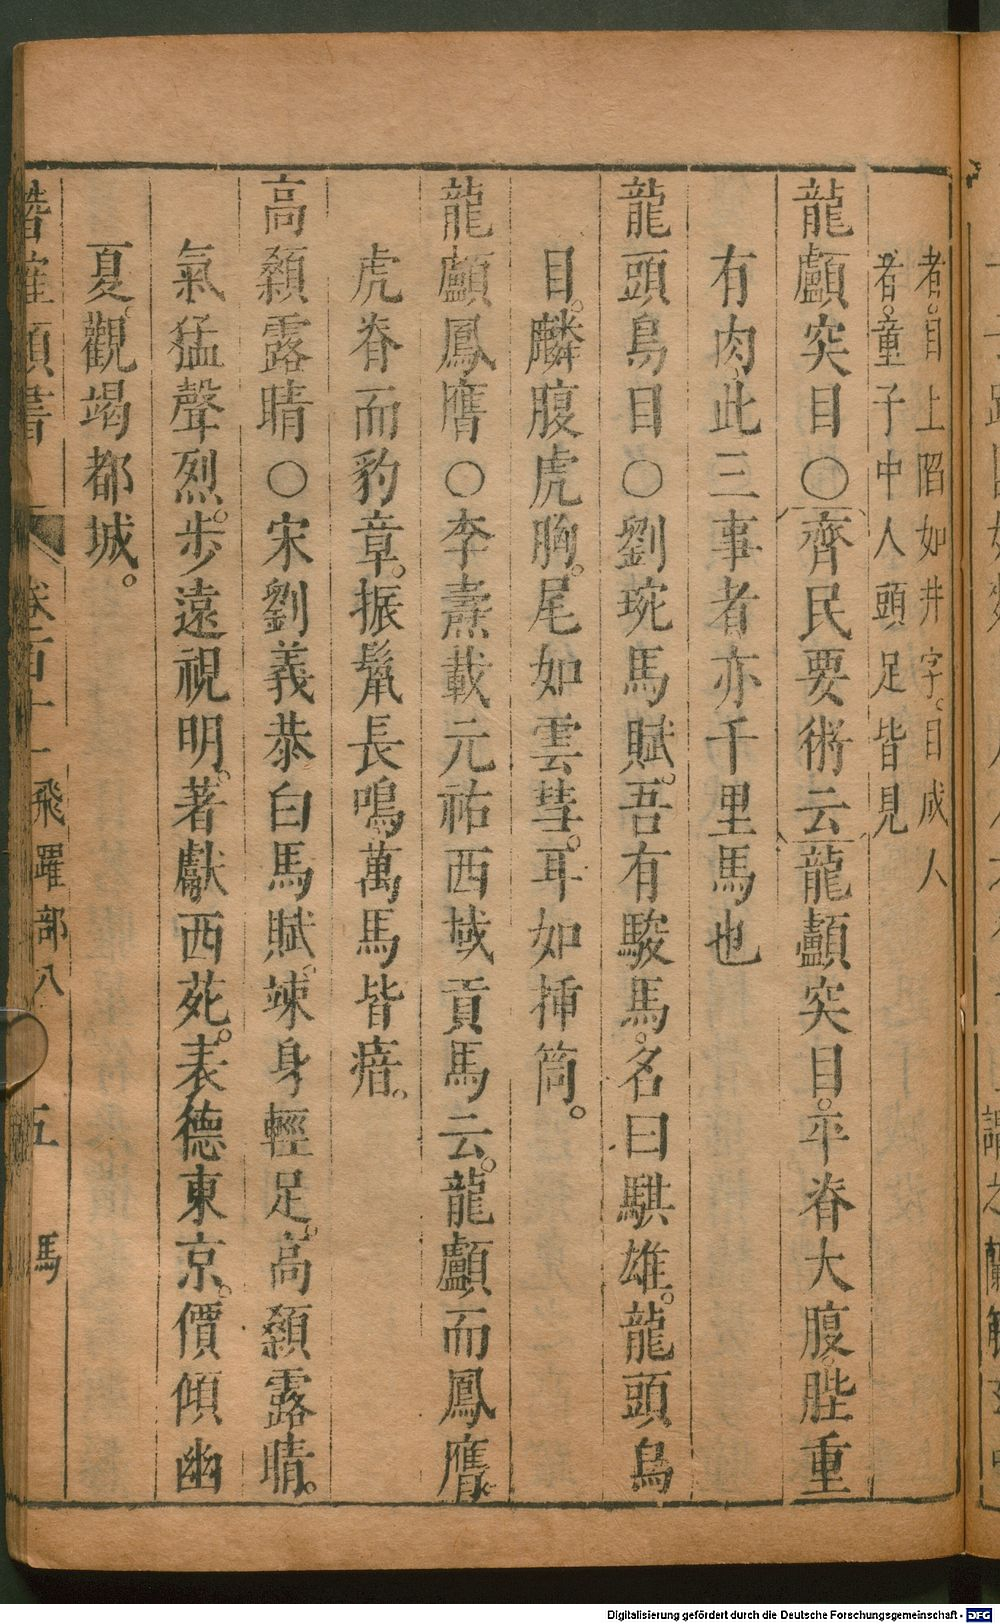 者。目上陷如井字。目成人
者。童子中人頭足皆見
龍顱突目○齊民要術云龍顱突目。平脊大腹。䏶重
有肉。此三事者亦千里馬也
龍頭鳥目○劉琬馬賦。吾有駿馬。名曰騏雄。龍頭鳥
目。麟腹虎胸。尾如雲彗。耳如揷筒。
龍顱鳳膺○李燾載元祐西域貢馬云。龍顱而鳳膺。
虎脊而豹章。振鬣長鳴。萬馬皆瘖。
高顙露睛○宋劉義恭白馬賦。竦身輕足。高顙露睛。
氣猛聲烈。步遠視明。著獻西苑。表德東京。價傾幽
夏。觀竭都城。
卷二百十一飛躍部八 五 馬
Digitalisierung gefördert durch die Deutsche Forschungsgemeinschaft - DFG